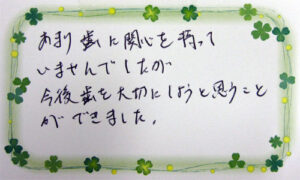 あまり歯に関心を持って
いませんでしたが
今後歯を大切にしようと思うこと
ができました。